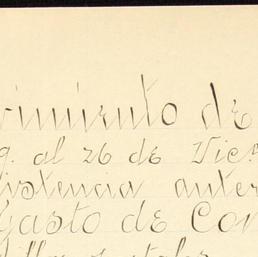 vimiento de
al 26 de Dic.
istencia anter
Gasto de Con